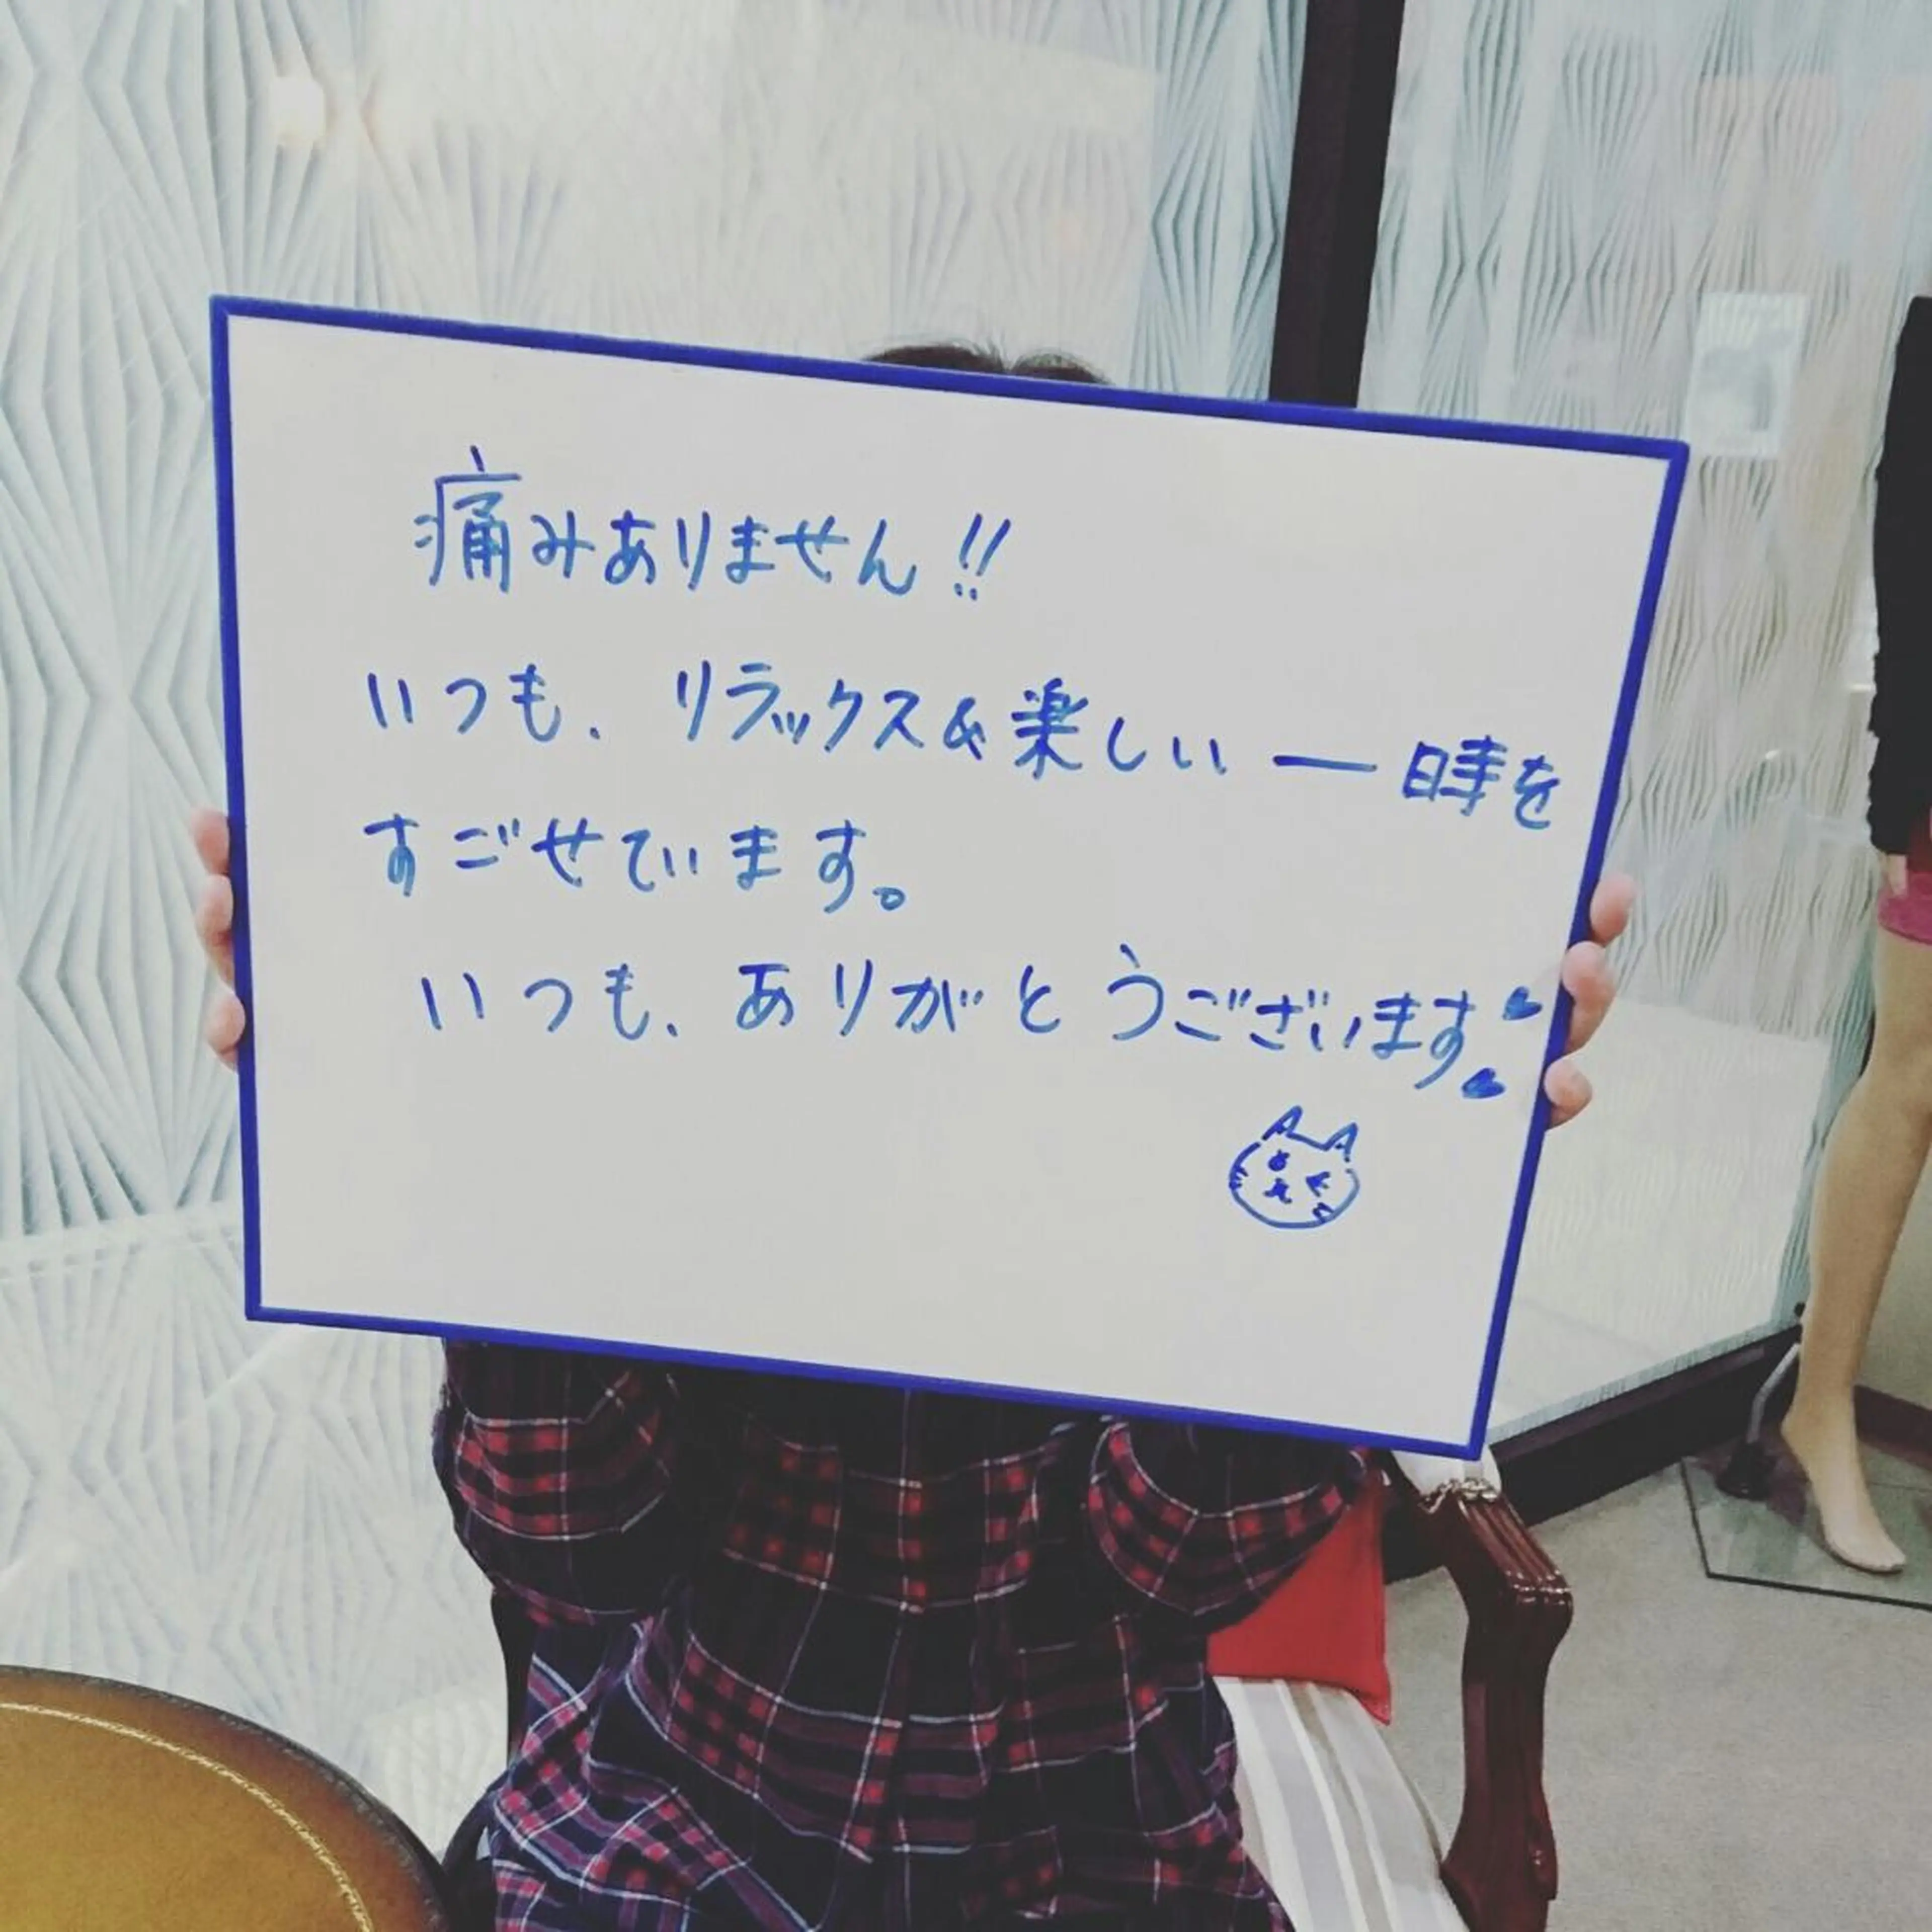 痛みありません!!
いつも、リラックス&楽しい一時を
すごせています。
いつも、ありがとうございます♥♥